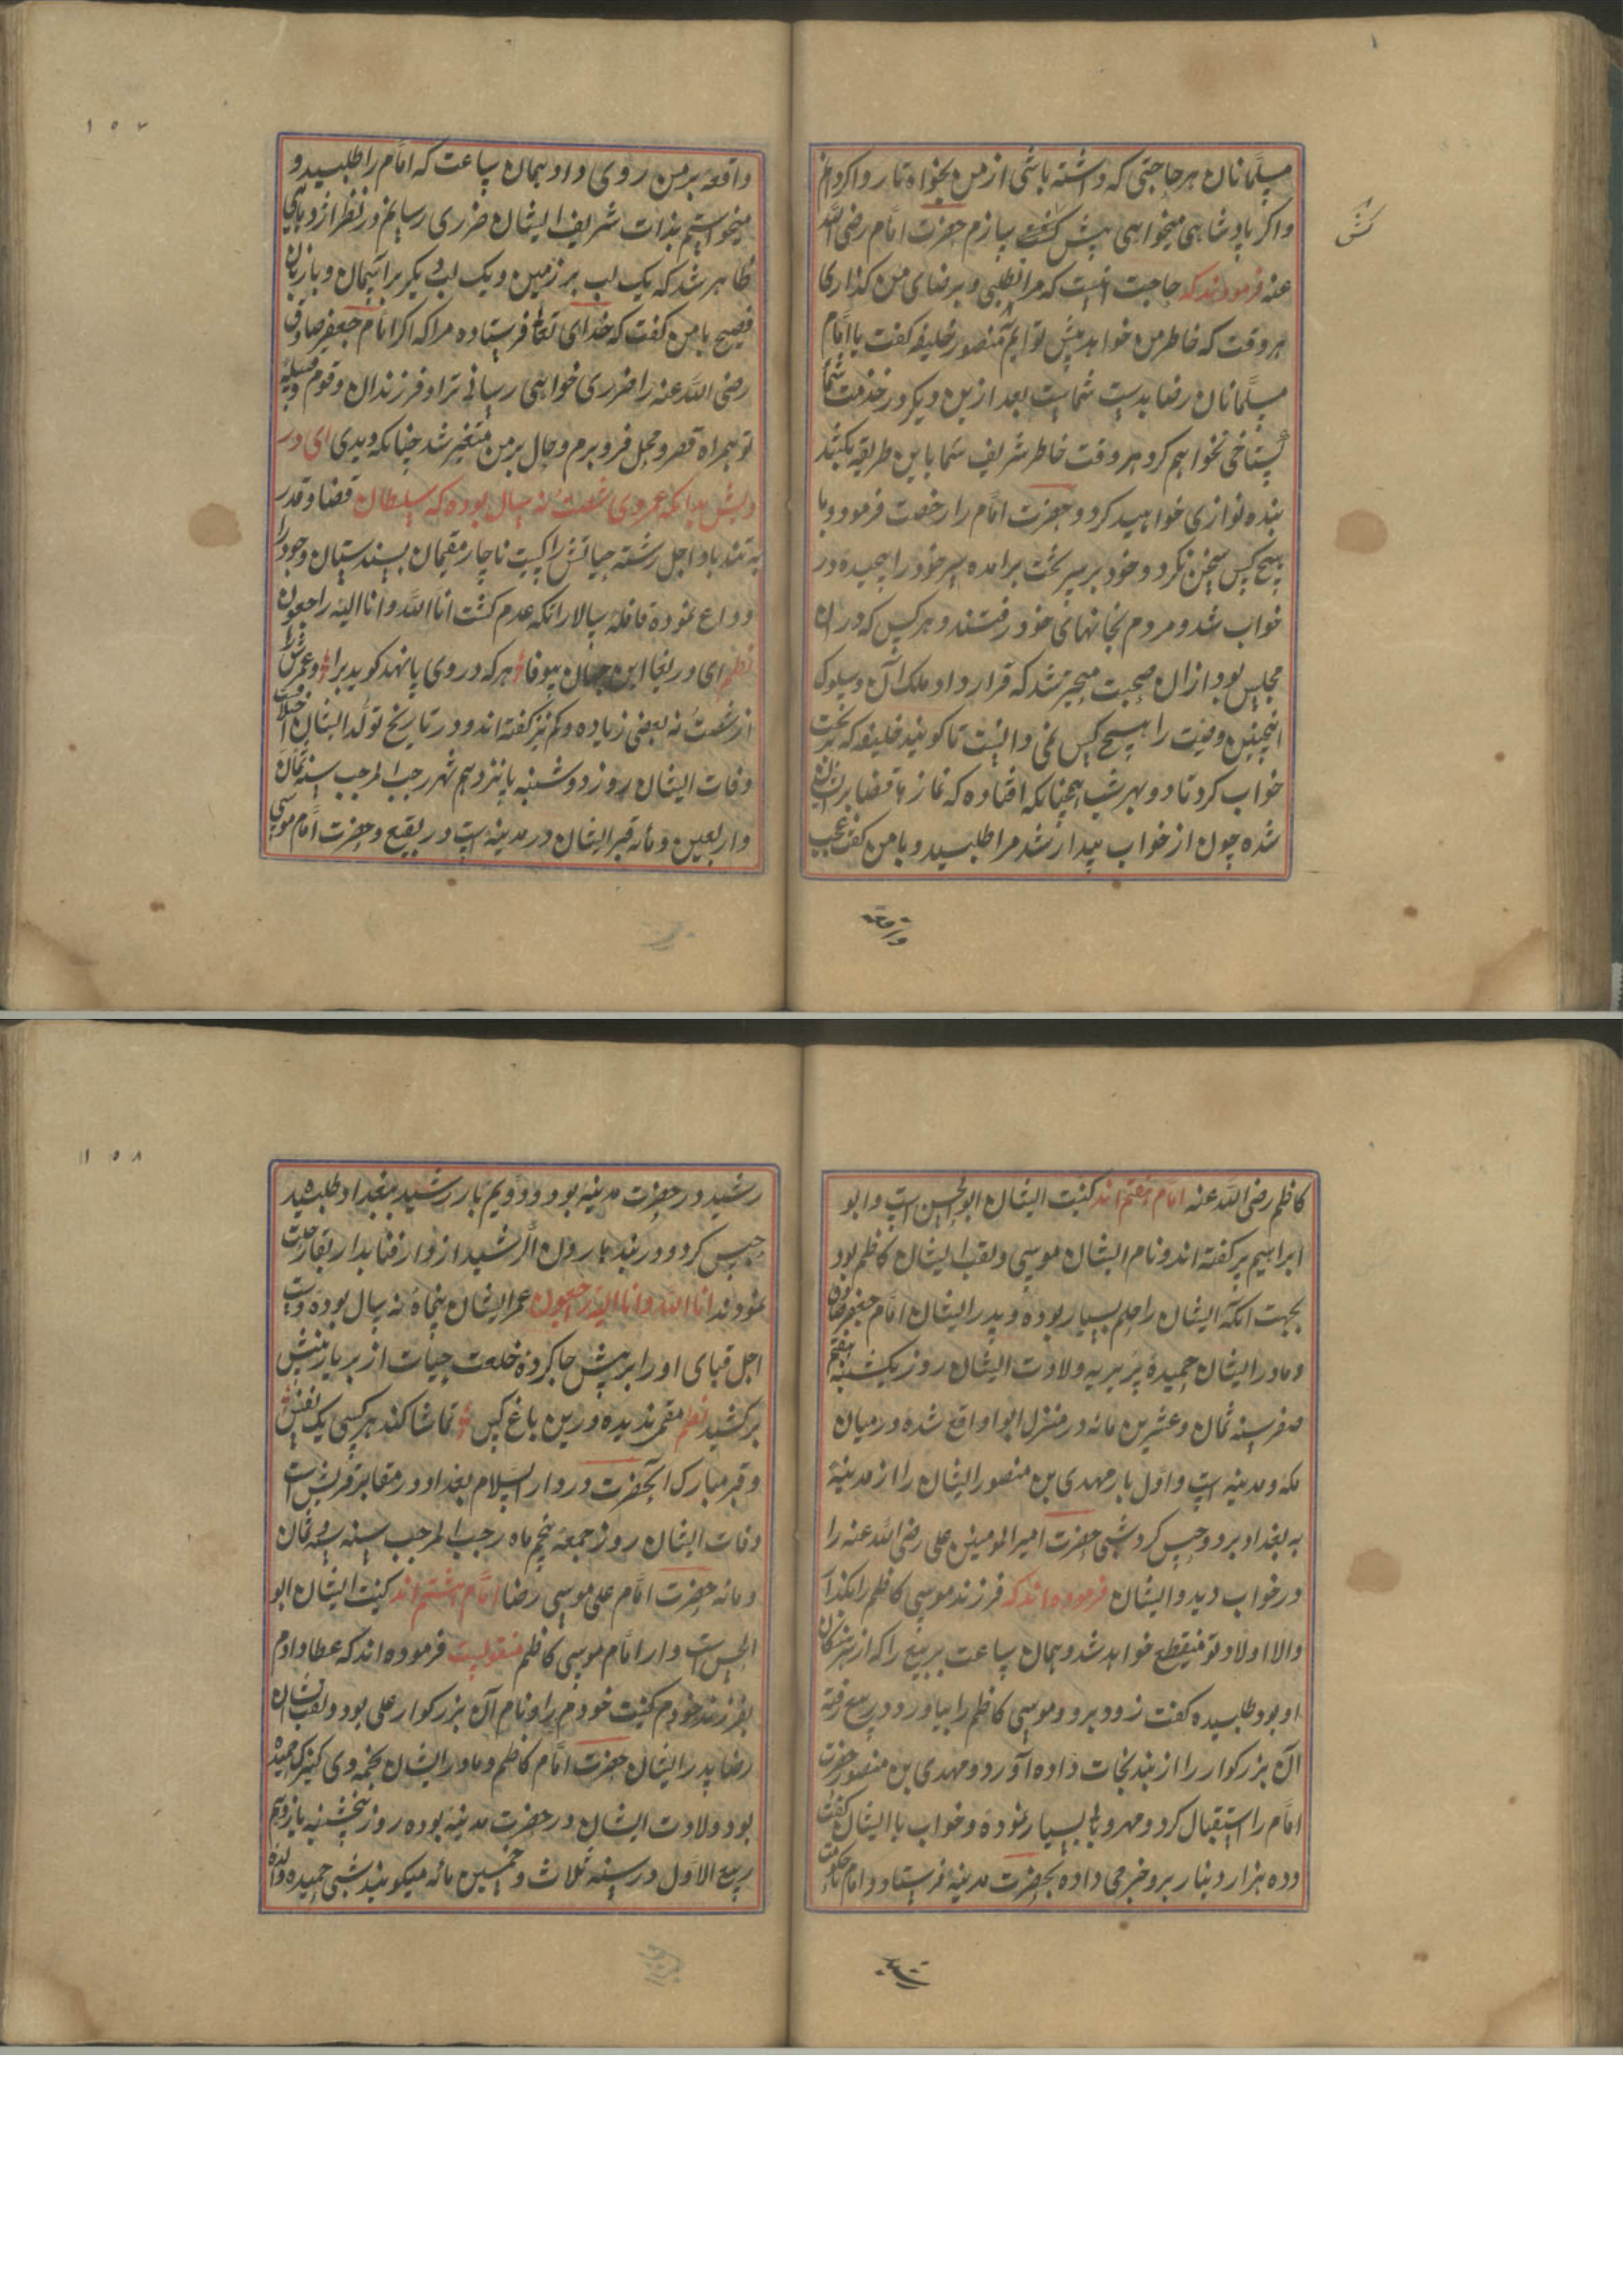 مسلمانان هر حاجتی که داشته باشی از من بخواه تا روا کردانم
واکر پادشاهی میخواهی پیش کشت سازم حضرت امام رضی الله
کش
عنه فرمودند که حاجت آنست که مرا نطلبی و برضای من کذاری تا
هر وقت که خاطر من خواهد پیش تو ایم منصور خلیفه کفت یا امام
مسلمانان رضا بدست شماست بعد ازین دیکر در خدمت شما
کستاخی نخواهم کرد هر وقت خاطر شریف شما باین طریقه بکشد
بنده نوازی خواهید کرد و حضرت امام را رخصت فرمود و با
هیچ کس سخن نکرد و خود بر سر تخت برامده سر خود را پیچیده در
خواب شد و مردم بخانهای خود رفتند و هر کس که در ان
مجلس بود ازان صحبت متحیر شد که قرار داد ملک ان و سلوک
اینچنین وضیت را هیچ کس نمی دانست تا کویند خلیفه که بر تخت
خواب کرد تا دو بهر شب همچنانکه افتاده که نماز ها قضا بر ایشان
شده چون از خواب بیدار شد مرا طلبید و با من کفت عجب
واقعه
۱۵۷
واقعه بر من روی داد بهمان ساعت که امام را طلبید و
میخواستم بذات شریف ایشان ضرری رسانم در نظر اژدهای
ظاهر شد که یک لب بر زمین و یک لب دیکر بر آسمان و با زبان
فصیح با من کفت که خدای تعالی فرستاده مرا که اکر امام جعفر صادق
رضی الله عنه را ضرری خواهی رسانی ترا و فرزندان و قوم و قبیله
تو همراه قصر و محل فرو برم و حال بر من متغیر شد چنانکه دیدی ای در
ویش بدانکه عمر وی شصت نه سال بوده که سلطان قضا و قدر
به تند باد اجل رشته حیاتش را کسیت ناچار مقیمان بسندستان وجود را
وداع نموده قافله سالار انکه عدم کشت انا لله وانا الیه راجعون
نظم ای دریغا این جهان بیوفا هر که در وی پا نهد کوید برا و عمرش را
از شصت نه بعضی زیاده و کم نیز کفته اند و در تاریخ تولد ایشان اختلاف
وفات ایشان روز دوشنبه پانزدهم شهر رجب المرجب سنه ثمان
واربعین و مائه قبر ایشان در مدینه است در بقیع و حضرت امام موسی
کاظم رضی الله عنه امام هفتم اند کنیت ایشان ابوالحسن است و ابو
ابراهیم نیز کفته اند و نام ایشان موسی و لقب ایشان کاظم بود
بجهت انکه ایشان را حلم بسیار بوده و پدر ایشان امام جعفر صادق
و مادر ایشان حمیده بربریه ولادت ایشان روز یکشنبه هفتم
صفر سنه ثمان و عشرین مائه در منزل ابوا واقع شده در میان
مکه و مدینه است و اول بار مهدی بن منصور ایشان را از مدینه
به بغداد برد و حبس کرد شبی حضرت امیر المومنین علی رضی الله عنه را
در خواب دید و ایشان فرموده اند که فرزند موسی کاظم را بکذار
والا اولاد تو منقطع خواهد شد و بهمان ساعت ربیع را که از سرهنکان
او بود طلبیده کفت زود برو و موسی کاظم را بیاور و ربیع رفته
ان بزرکوار را از بند نجات داده آورد و مهدی بن منصور حضرت
امام را استقبال کرد و مهروبانی بسیار نموده و خواب با ایشان کفت
و ده هزار دینار برو خرجی داده بحضرت مدینه فرستاد و امام تا حکومت
رشید
۱۵۸
رشید در حضرت مدینه بود و دویم بار رشید ببغداد طلبیده
حبس کرد و در بند هارون الرشید از دار فنا بدار بقا رحلت
نمودند انا لله وانا الیه راجعون عمر ایشان پنجاه نه سال بوده دست
اجل قبای او را بر پیش جا کرده خلعت حیات از بر نازنینش
بر کشید نظم مقمی ندیده درین باغ کس تماشا کند هر کسی یک نفس
و قبر مبارک آنحضرت در دار السلام بغداد در مقابر قریش است
وفات ایشان روز جمعه پنجم ماه رجب المرجب سنه ثلث و ثمان
و مائه حضرت امام علی موسی رضا امام هشتم اند کنیت ایشان ابو
الحسن است و از امام موسی کاظم منقولست فرموده اند که عطا دادم
بفرزند خودم کنیت خودم را و نام آن بزرکوار علی بود و لقب ایشان
رضا پدر ایشان حضرت امام کاظم و مادر ایشان نجمه وی کنیزک حمیده
بود ولادت ایشان در حضرت مدینه بوده روز پنجشنبه یازدهم
ربیع الاول در سنه ثلاث و خمسین مائه میکویند شبی حمیده والده